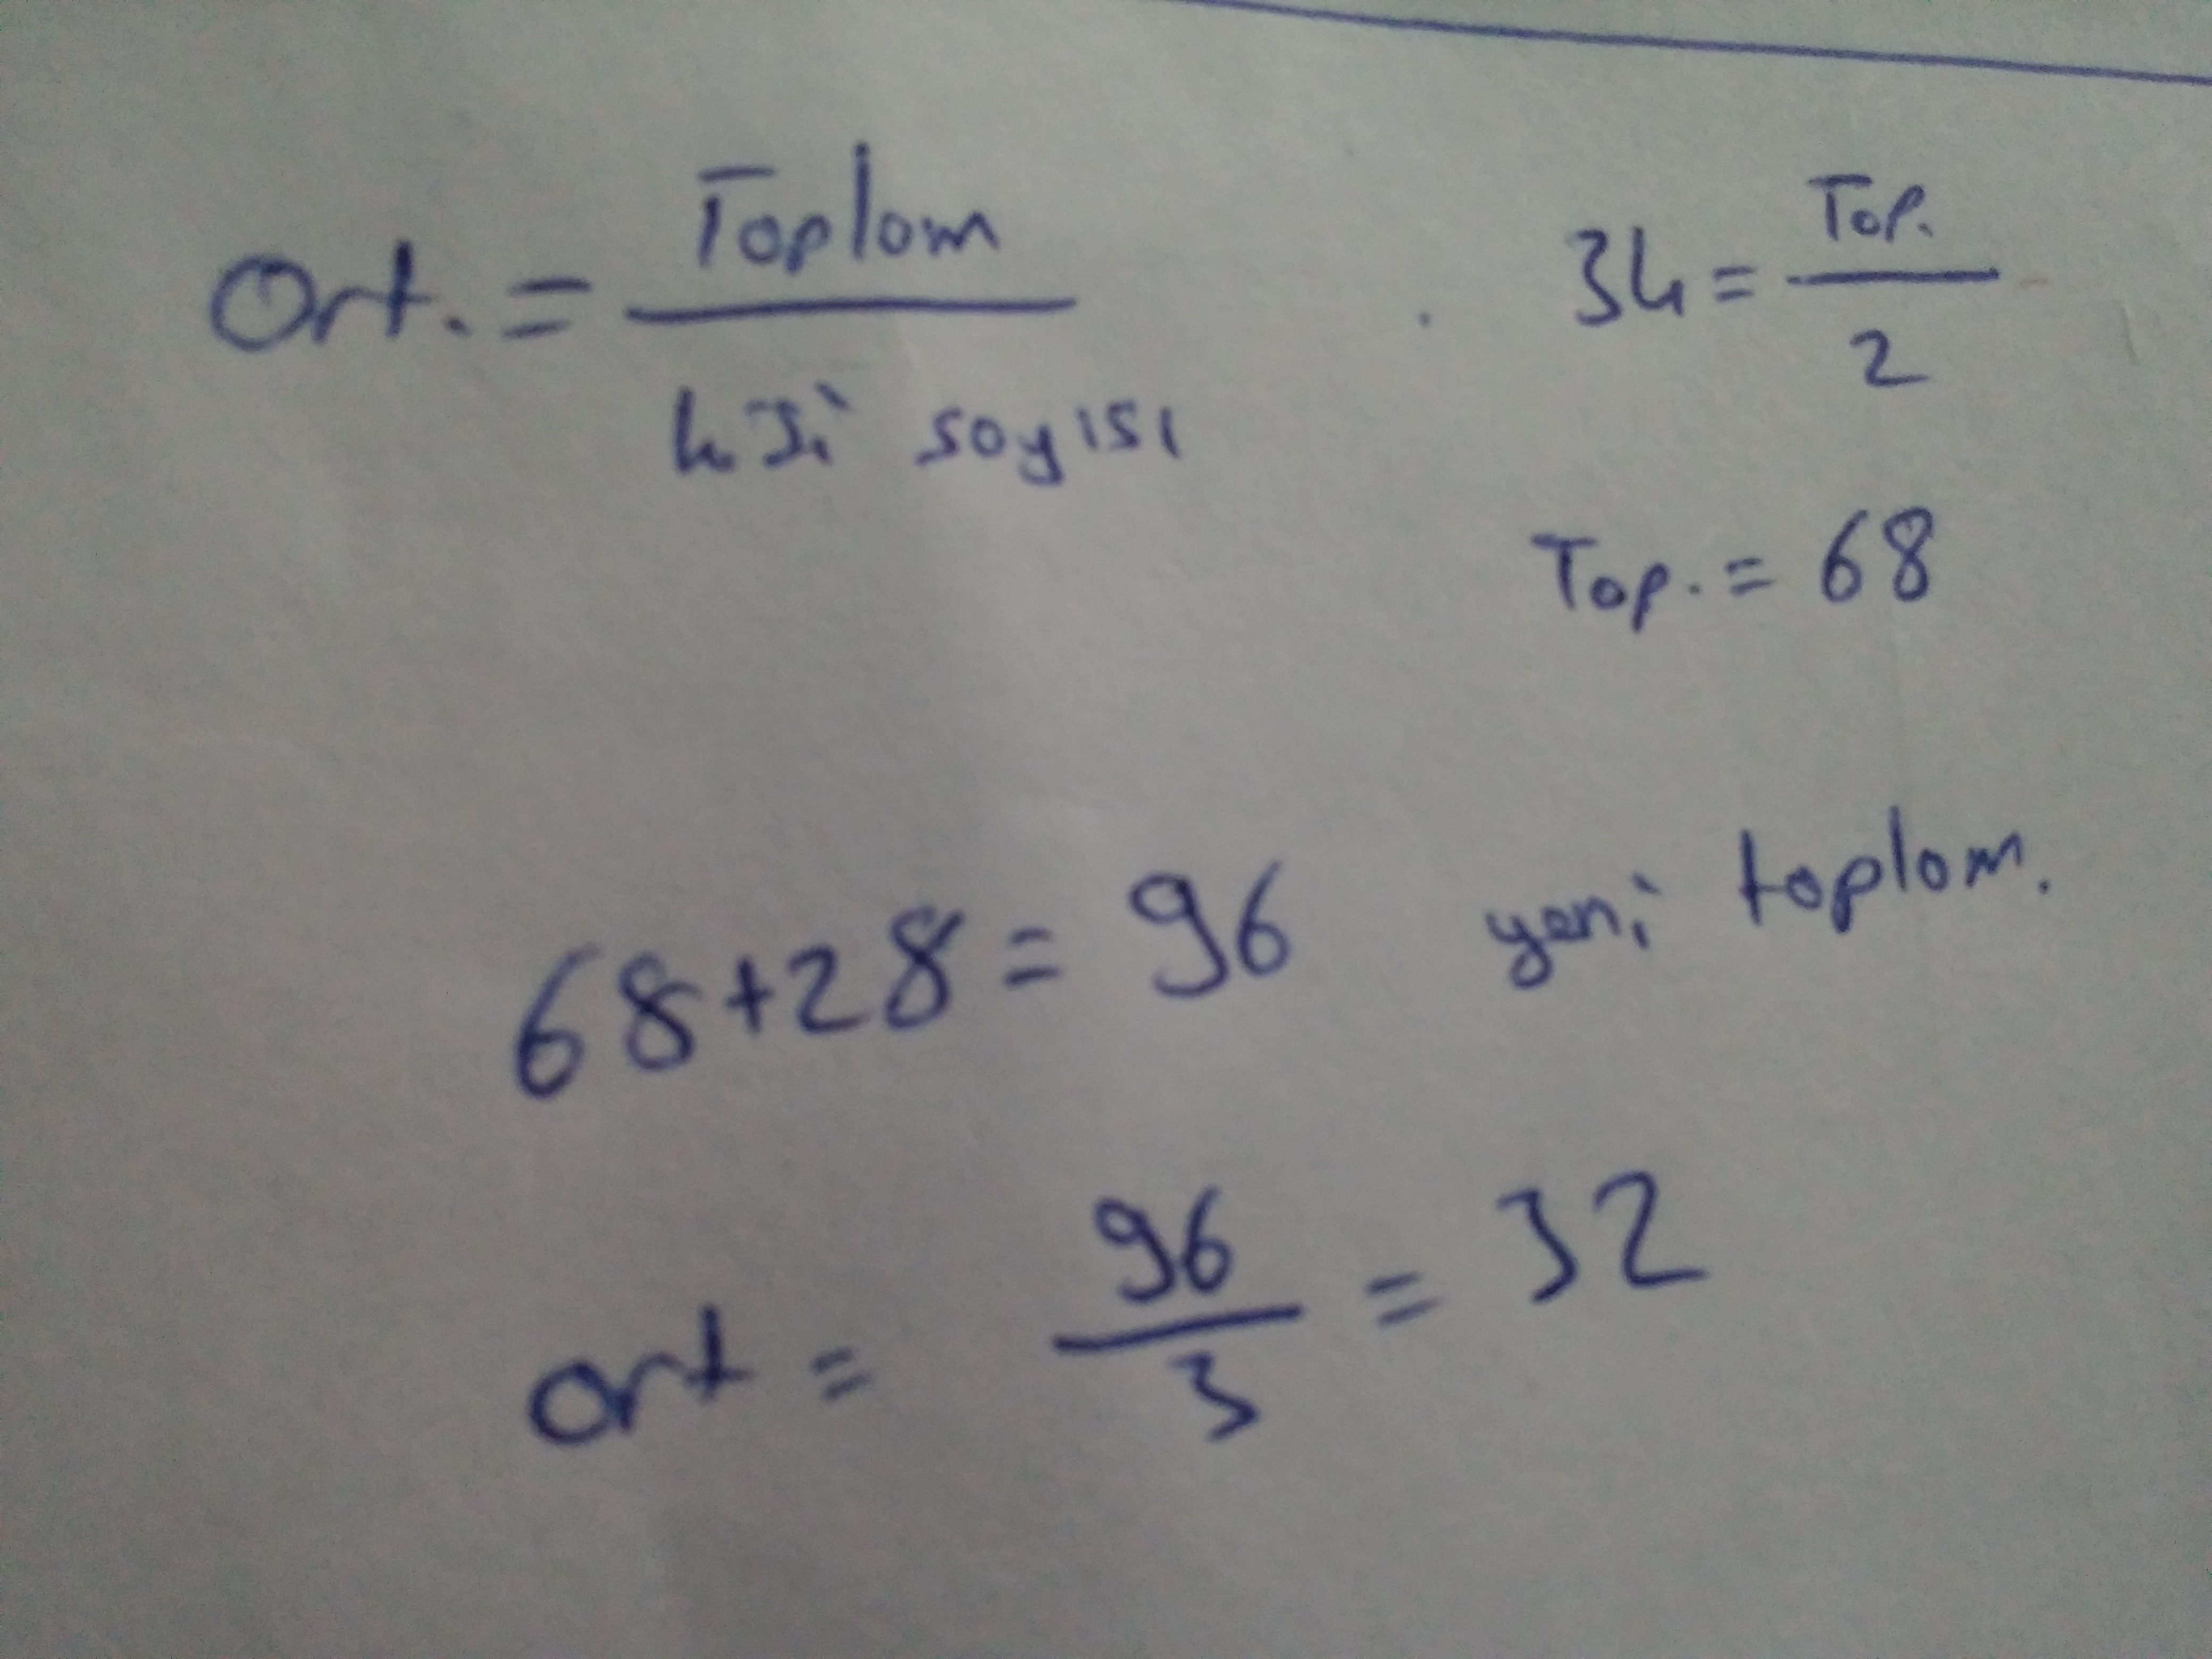 Ort. = Toplam / kişi sayısı
34 = Top. / 2
Top. = 68
68+28 = 96 yeni toplam.
ort = 96 / 3 = 32